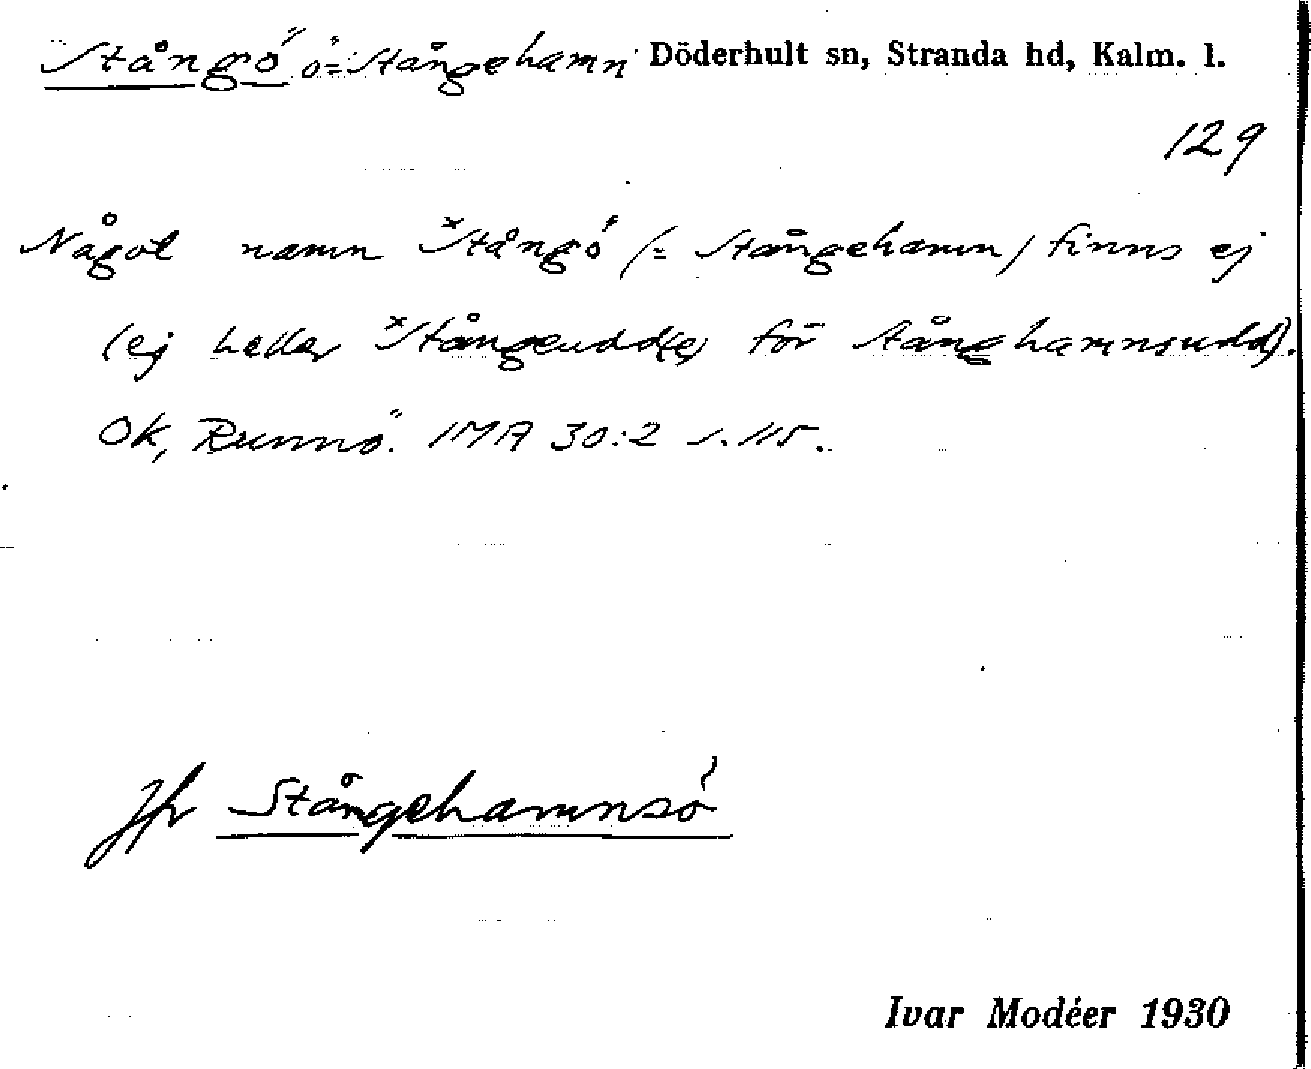 Stångö ö = Stångehamn Döderhult sn, Stranda hd, Kalm. l.
129
Något namn *Stångö (= Stångehamn) finns ej
(ej heller *Stångeudd(e) för Stånghamnsudd).
Ok, Runnö. IMA 30:2 s. 115.
Jfr Stångehamnsö
Ivar Modéer 1930